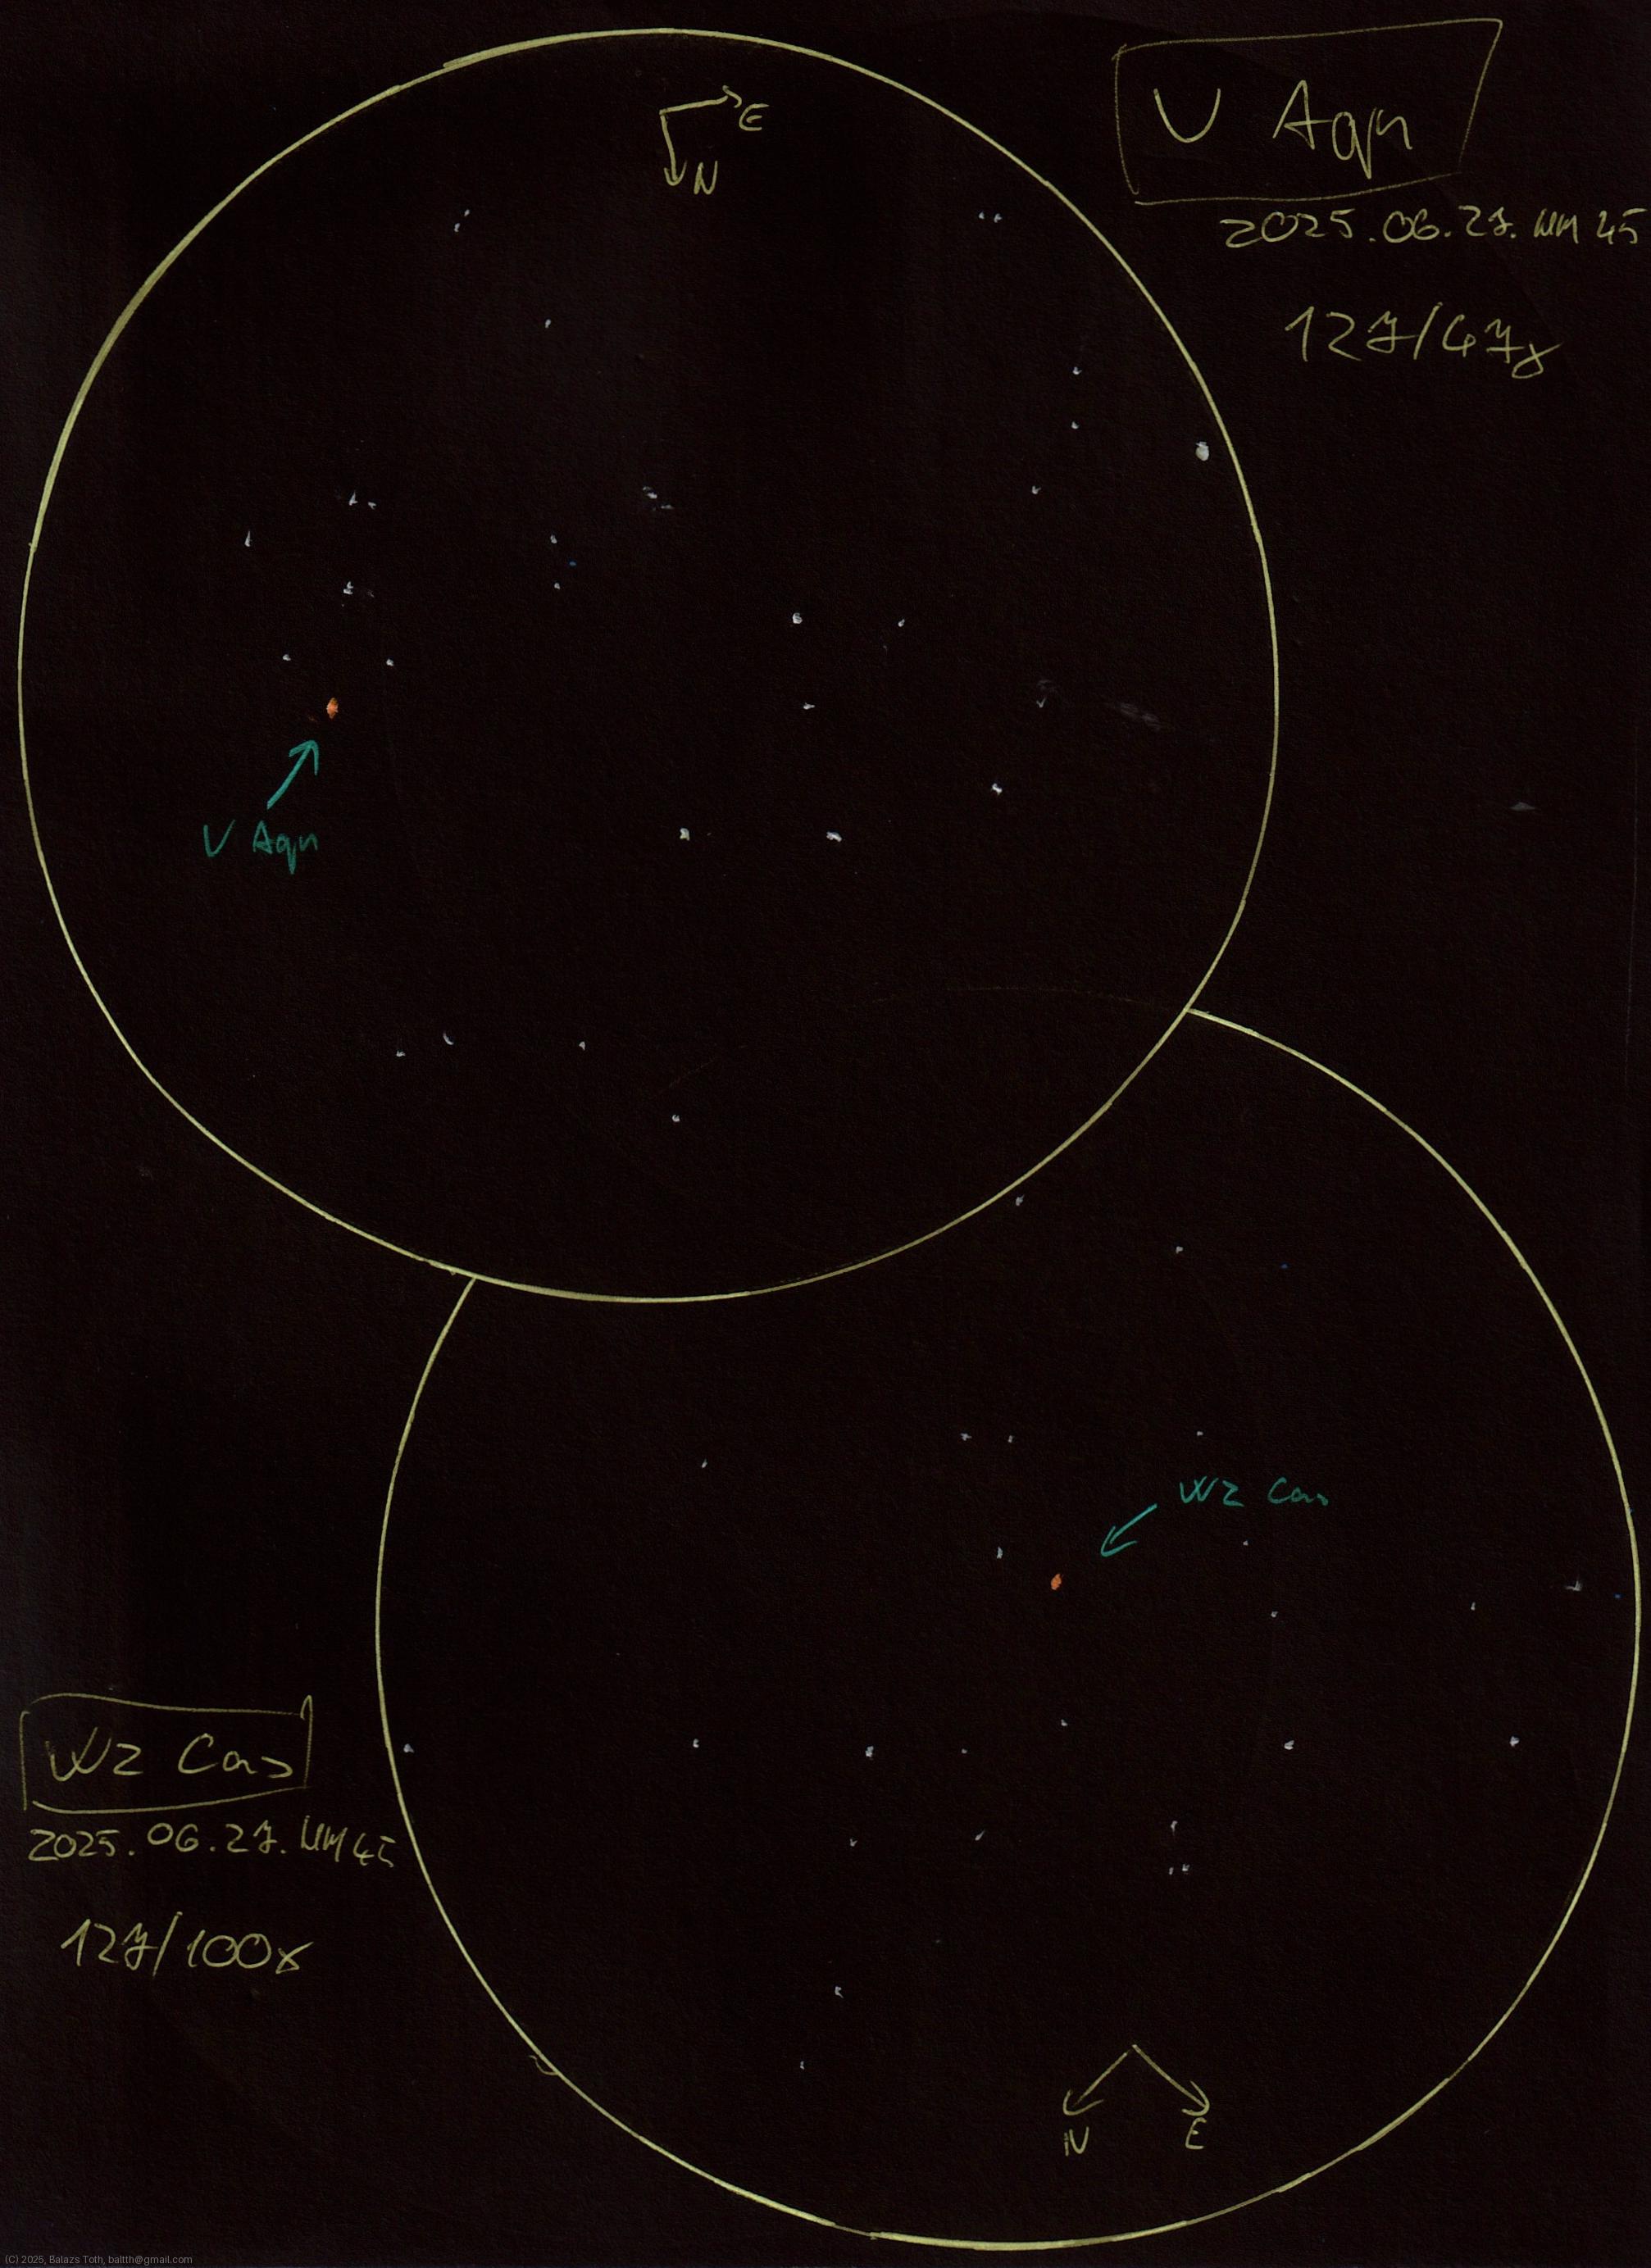 V Aqn
2025.06.27. NM 45
127/47x
E
N
V Aqn
WZ Cas
WZ Cas
2025.06.27. NM 45
127/100x
N
E
(C) 2025, Balazs Toth, baltth@gmail.com